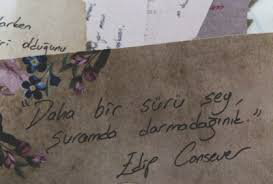 arken
ri olduğunu
"Daha bir sürü şey,
şuramda darmadağınık."
Edip Cansever